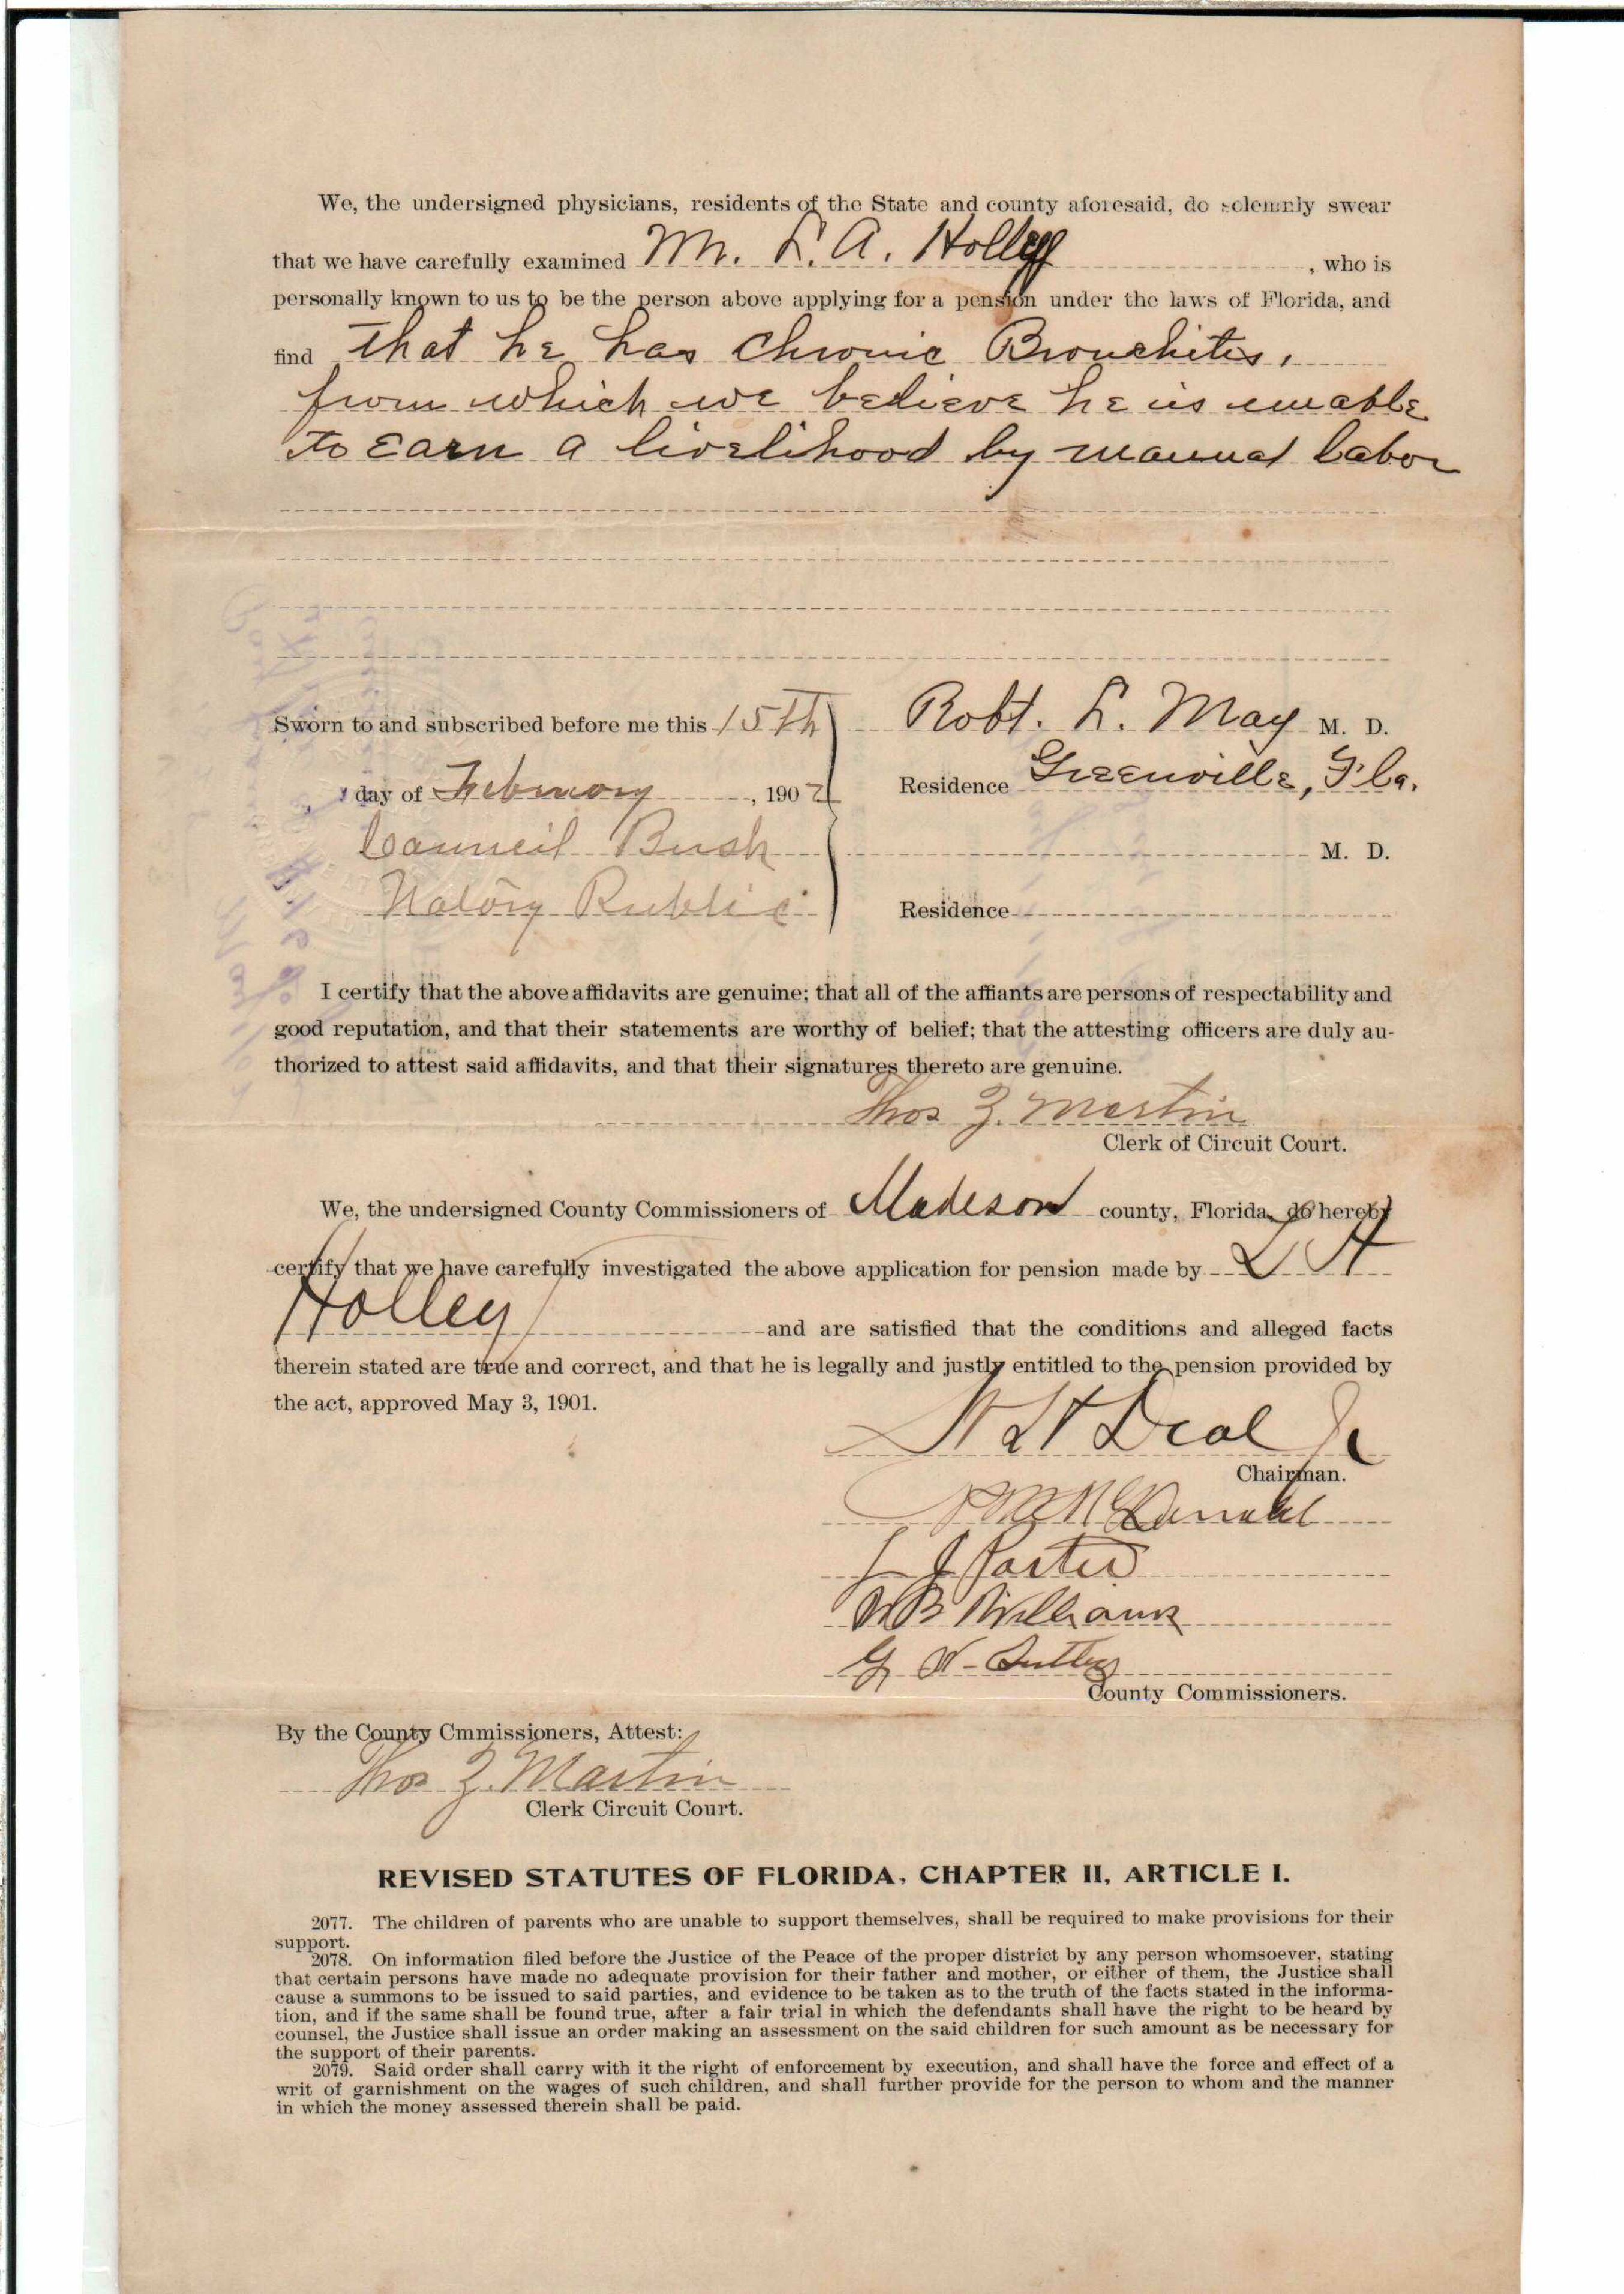 We, the undersigned physicians, residents of the State and county aforesaid, do solemnly swear
that we have carefully examined Mr. L. A. Holley, who is
personally known to us to be the person above applying for a pension under the laws of Florida, and
find that he has Chronic Bronchitis,
from which we believe he is unable
to earn a livelihood by manual labor
Sworn to and subscribed before me this 15th
Robt. L. May M. D.
day of February, 1902
Residence Greenville, Fla.
Council Bush
M. D.
Notary Public
Residence
I certify that the above affidavits are genuine; that all of the affiants are persons of respectability and
good reputation, and that their statements are worthy of belief; that the attesting officers are duly au-
thorized to attest said affidavits, and that their signatures thereto are genuine.
Thos Z. Martin
Clerk of Circuit Court.
We, the undersigned County Commissioners of Madison county, Florida, do hereby
certify that we have carefully investigated the above application for pension made by L A
Holley and are satisfied that the conditions and alleged facts
therein stated are true and correct, and that he is legally and justly entitled to the pension provided by
the act, approved May 3, 1901.
Deal Jr
Chairman.
McDonald
L J Porter
Williams
G W
County Commissioners.
By the County Cmmissioners, Attest:
Thos Z. Martin
Clerk Circuit Court.
REVISED STATUTES OF FLORIDA, CHAPTER II, ARTICLE I.
2077. The children of parents who are unable to support themselves, shall be required to make provisions for their
support.
2078. On information filed before the Justice of the Peace of the proper district by any person whomsoever, stating
that certain persons have made no adequate provision for their father and mother, or either of them, the Justice shall
cause a summons to be issued to said parties, and evidence to be taken as to the truth of the facts stated in the informa-
tion, and if the same shall be found true, after a fair trial in which the defendants shall have the right to be heard by
counsel, the Justice shall issue an order making an assessment on the said children for such amount as be necessary for
the support of their parents.
2079. Said order shall carry with it the right of enforcement by execution, and shall have the force and effect of a
writ of garnishment on the wages of such children, and shall further provide for the person to whom and the manner
in which the money assessed therein shall be paid.